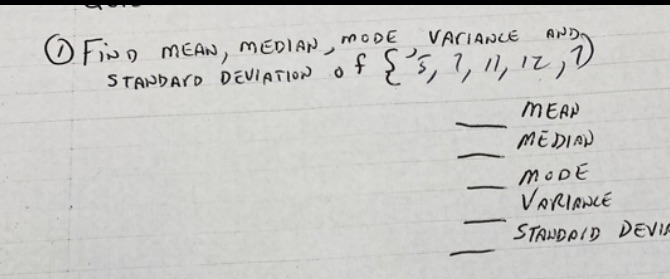 ① FIND MEAN, MEDIAN, MODE VARIANCE AND
STANDARD DEVIATION of {5, 7, 11, 12, 7}
MEAN
MEDIAN
MODE
VARIANCE
STANDARD DEVIA